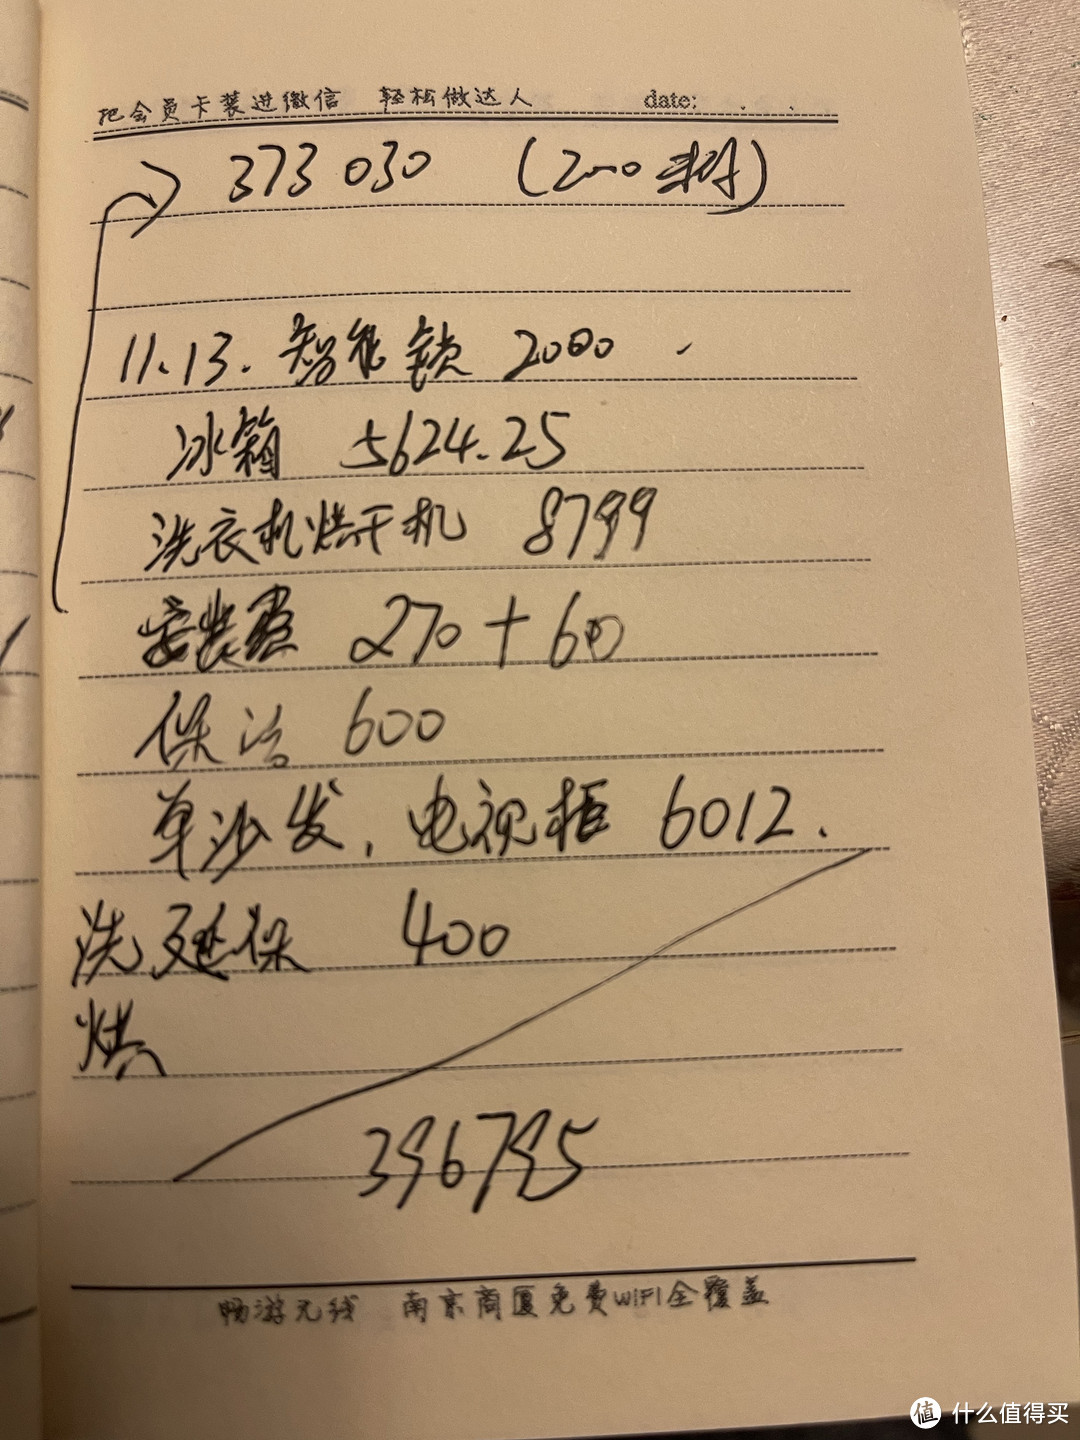 把会员卡装进微信 轻松做达人 date: . .
373030 (2000押)
11.13. 智能锁 2000 .
冰箱 5624.25
洗衣机烘干机 8799
安装费 270+60
保洁 600
单沙发, 电视柜 6012.
洗 延保 400
烘
396795
畅游无线 南京商厦免费WIFI全覆盖
值 什么值得买